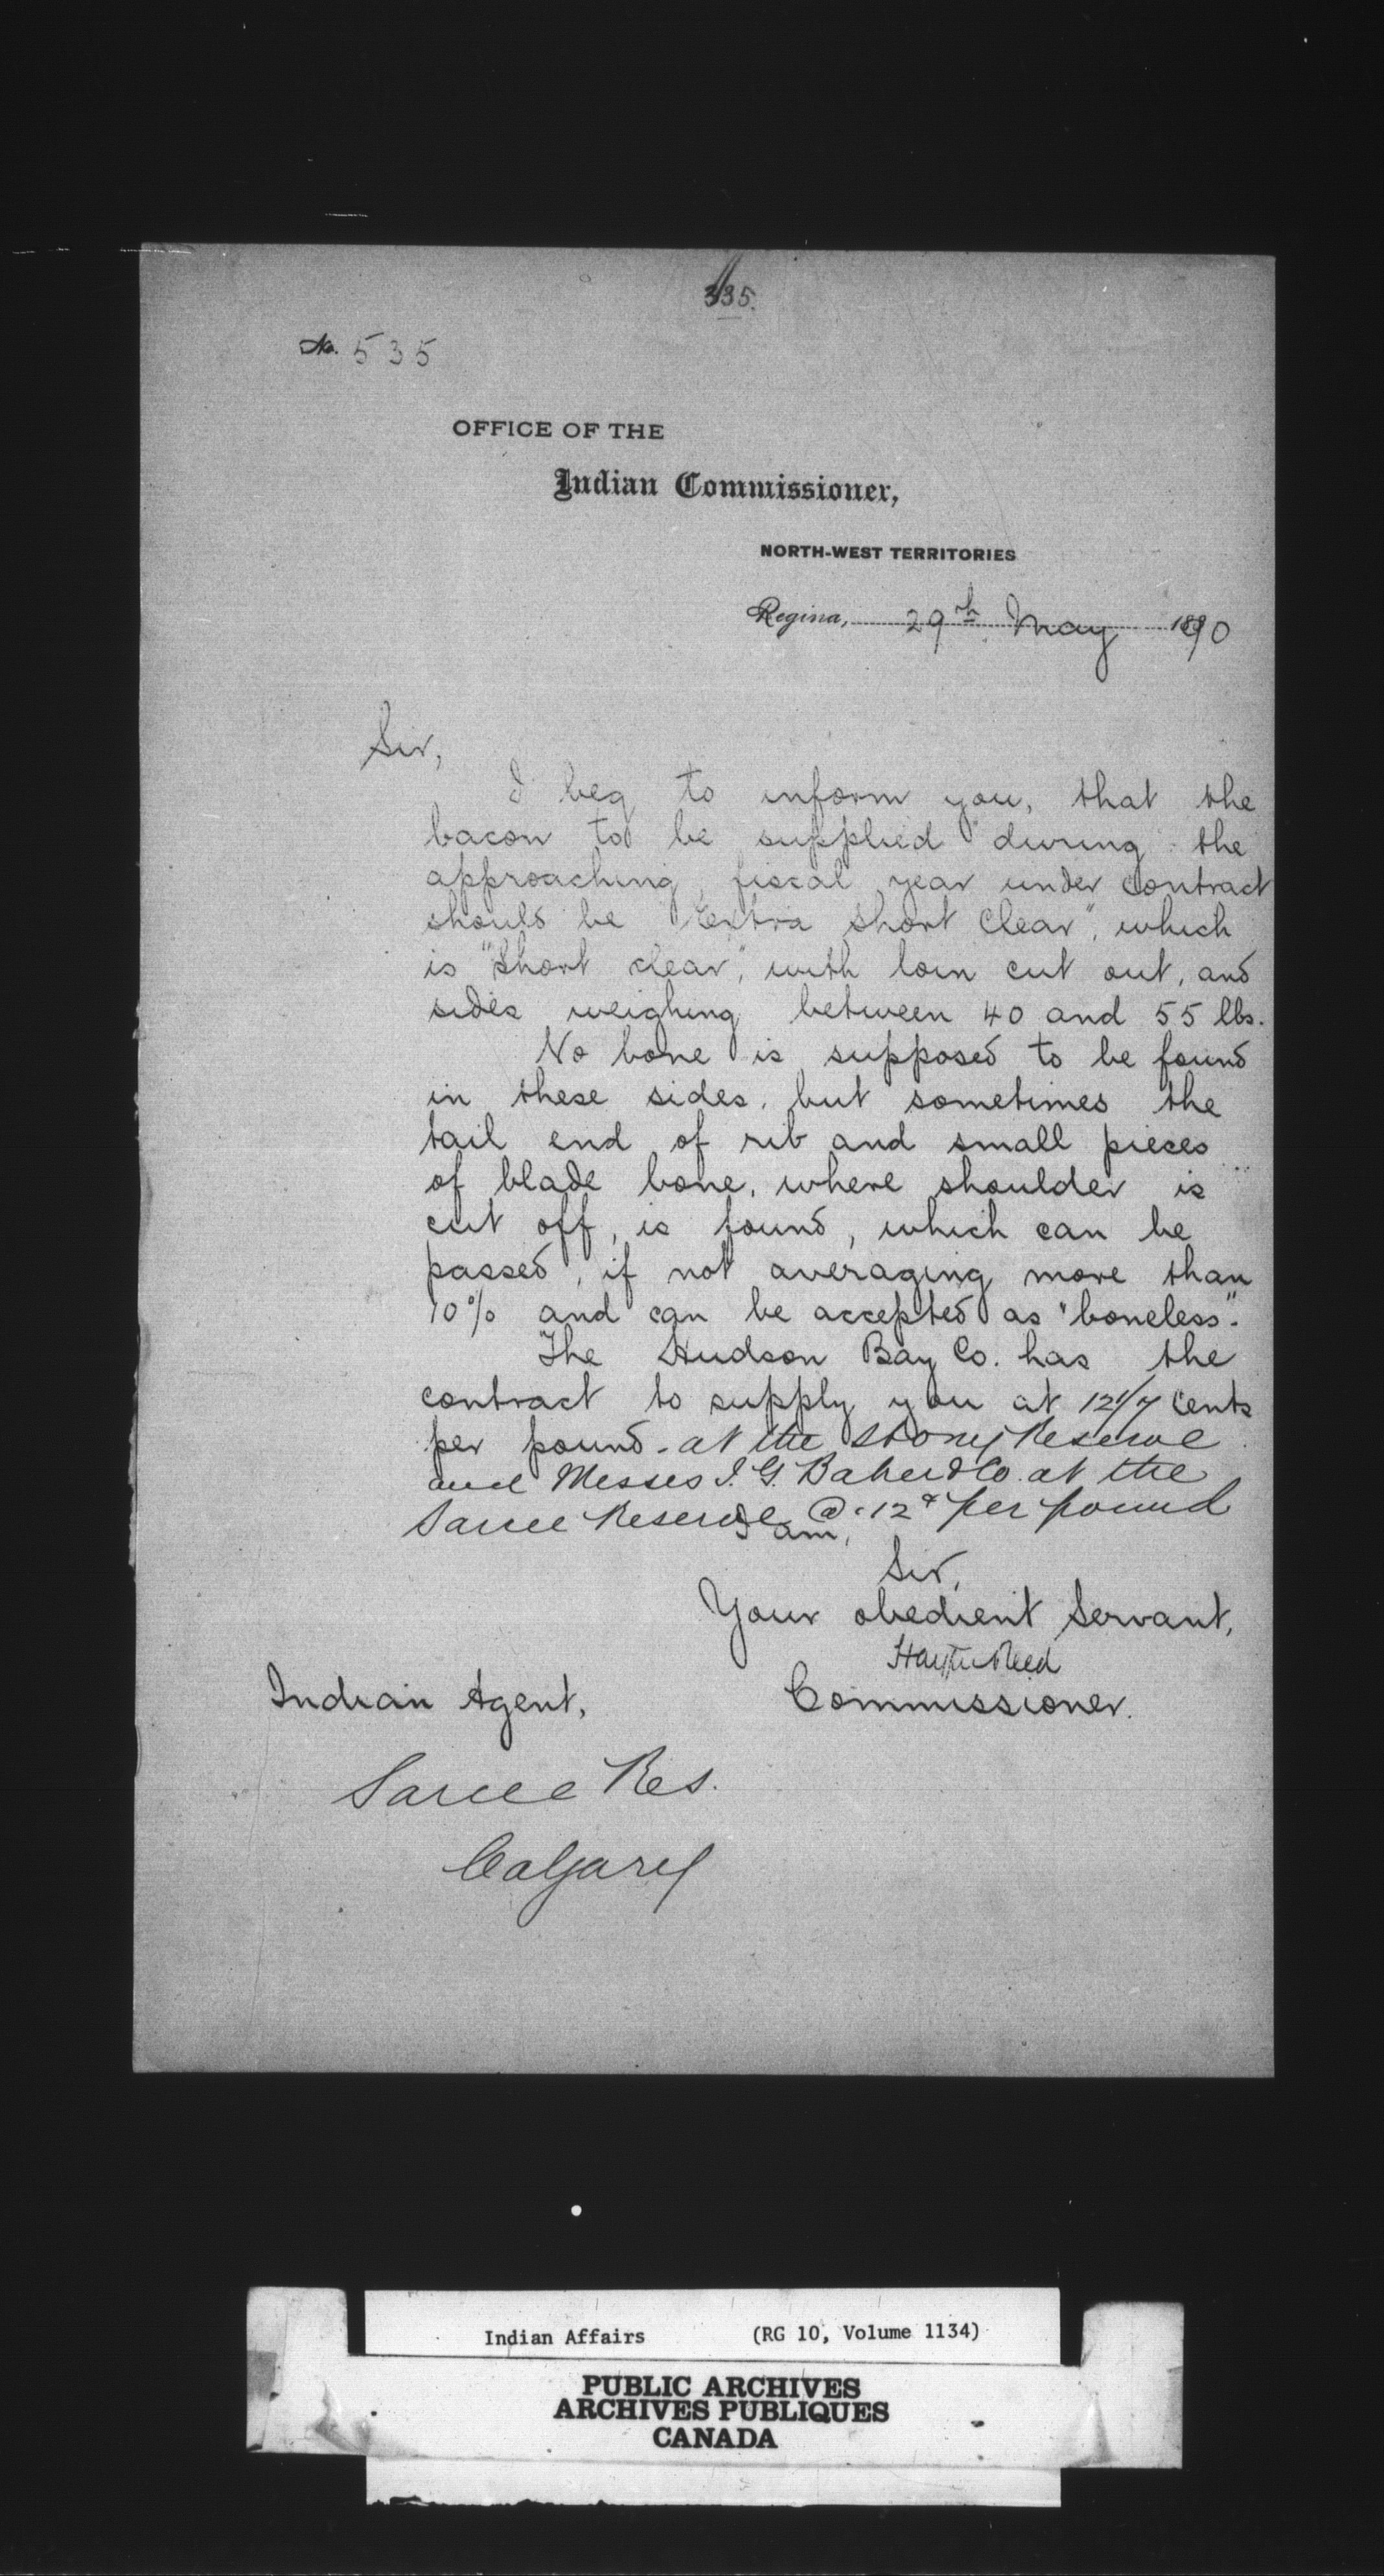 335.
No. 535
OFFICE OF THE
Indian Commissioner,
NORTH-WEST TERRITORIES
Regina, 29th May 1890
Sir,
I beg to inform you, that the
bacon to be supplied during the
approaching fiscal year under contract
should be "Extra Short Clear", which
is "Short clear," with loin cut out, and
sides weighing between 40 and 55 lbs.
No bone is supposed to be found
in these sides, but sometimes the
tail end of rib and small pieces
of blade bone, where shoulder is
cut off, is found, which can be
passed, if not averaging more than
10% and can be accepted as "boneless".
The Hudson Bay Co. has the
contract to supply you at 12 1/7 cents
per pound - at the Stony Reserve
and Messes I. G. Baker & Co. at the
Sarcee Reserve @ 12¢ per pound
I am,
Sir,
Your obedient Servant,
Hayter Reed
Commissioner.
Indian Agent,
Sarcee Res.
Calgary
Indian Affairs (RG 10, Volume 1134)
PUBLIC ARCHIVES
ARCHIVES PUBLIQUES
CANADA